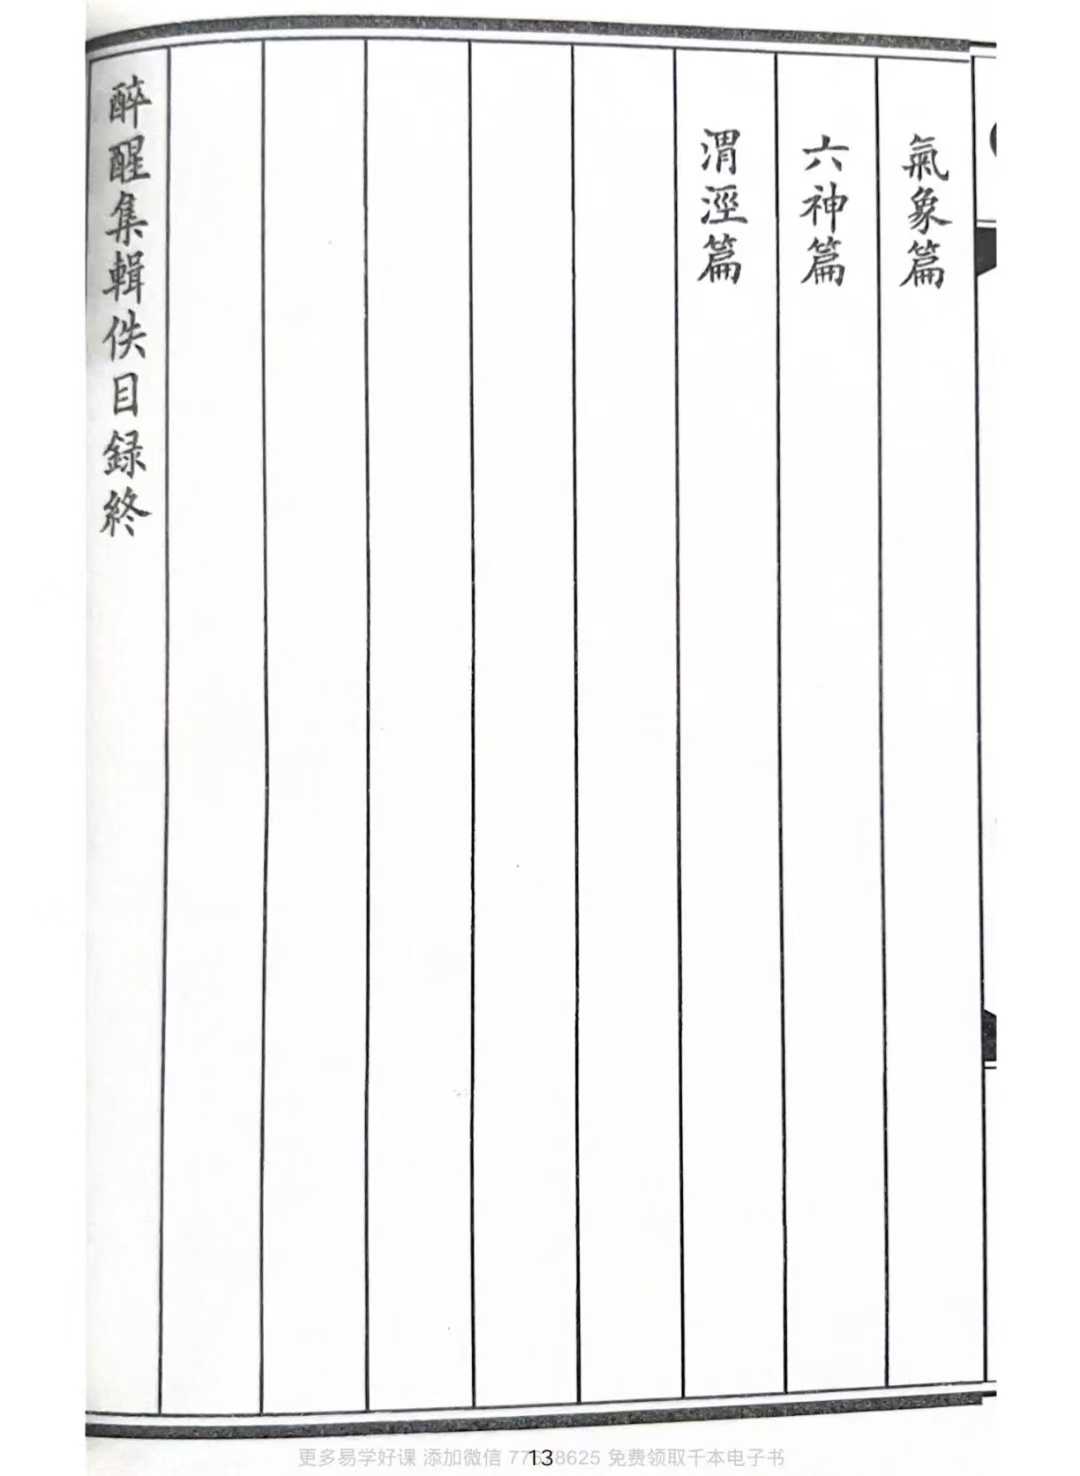 氣象篇
六神篇
渭涇篇
醉醒集輯佚目録終
更多易学好课 添加微信 8625 免费领取千本电子书
13